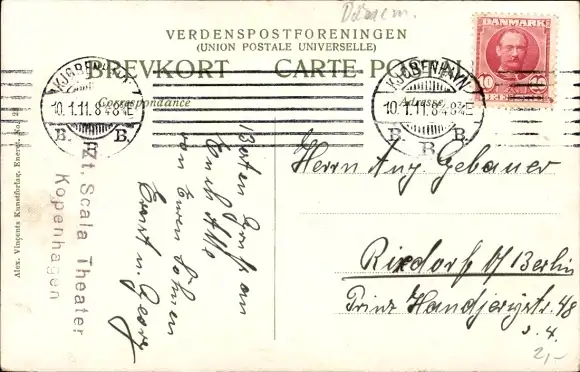 Dänem.
VERDENSPOSTFORENINGEN
(UNION POSTALE UNIVERSELLE)
BREVKORT CARTE POSTALE
Correspondance
Adresse
DANMARK
10 10
KJØBENHAVN
10.1.11. 8-9¾E
B. B.
KJØBENHAVN
10.1.11. 8-9¾E
B. B.
Alex. Vincents Kunstforlag, Eneret. No.
Zt. Scala Theater
Kopenhagen
Besten Gruß an
Euch Alle
von Euren Söhnen
Ernst u. Georg
Herrn Aug. Gebauer
Rixdorf b/ Berlin
Prinz Handjerystr. 48
2,-